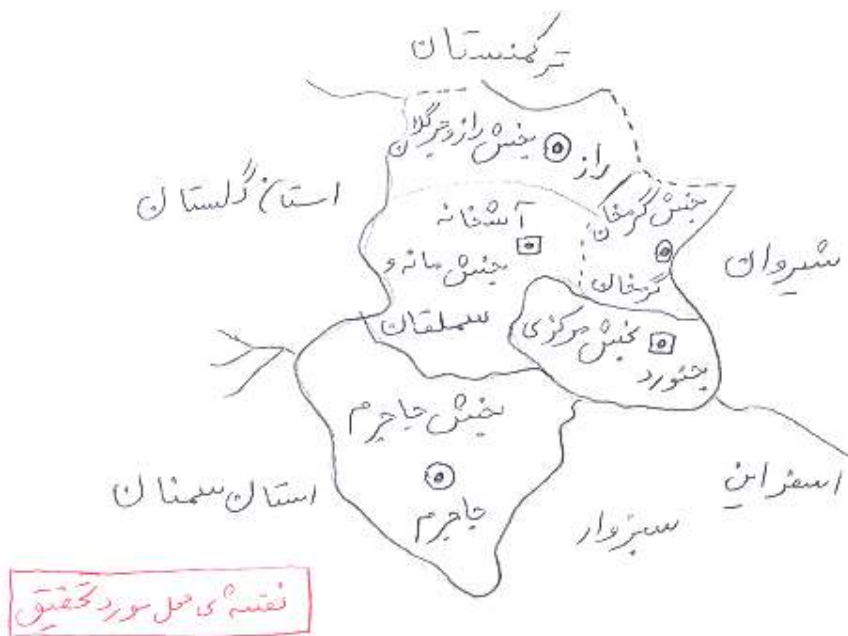 ترکمنستان
بخش راز و جرگلان
راز
استان گلستان
بخش گرمخان
گرمخان
شیروان
آشخانه
بخش مانه و
سملقان
بخش مرکزی
بجنورد
بخش جاجرم
جاجرم
اسفراین
سبزوار
استان سمنان
نقشه ی محل مورد تحقیق